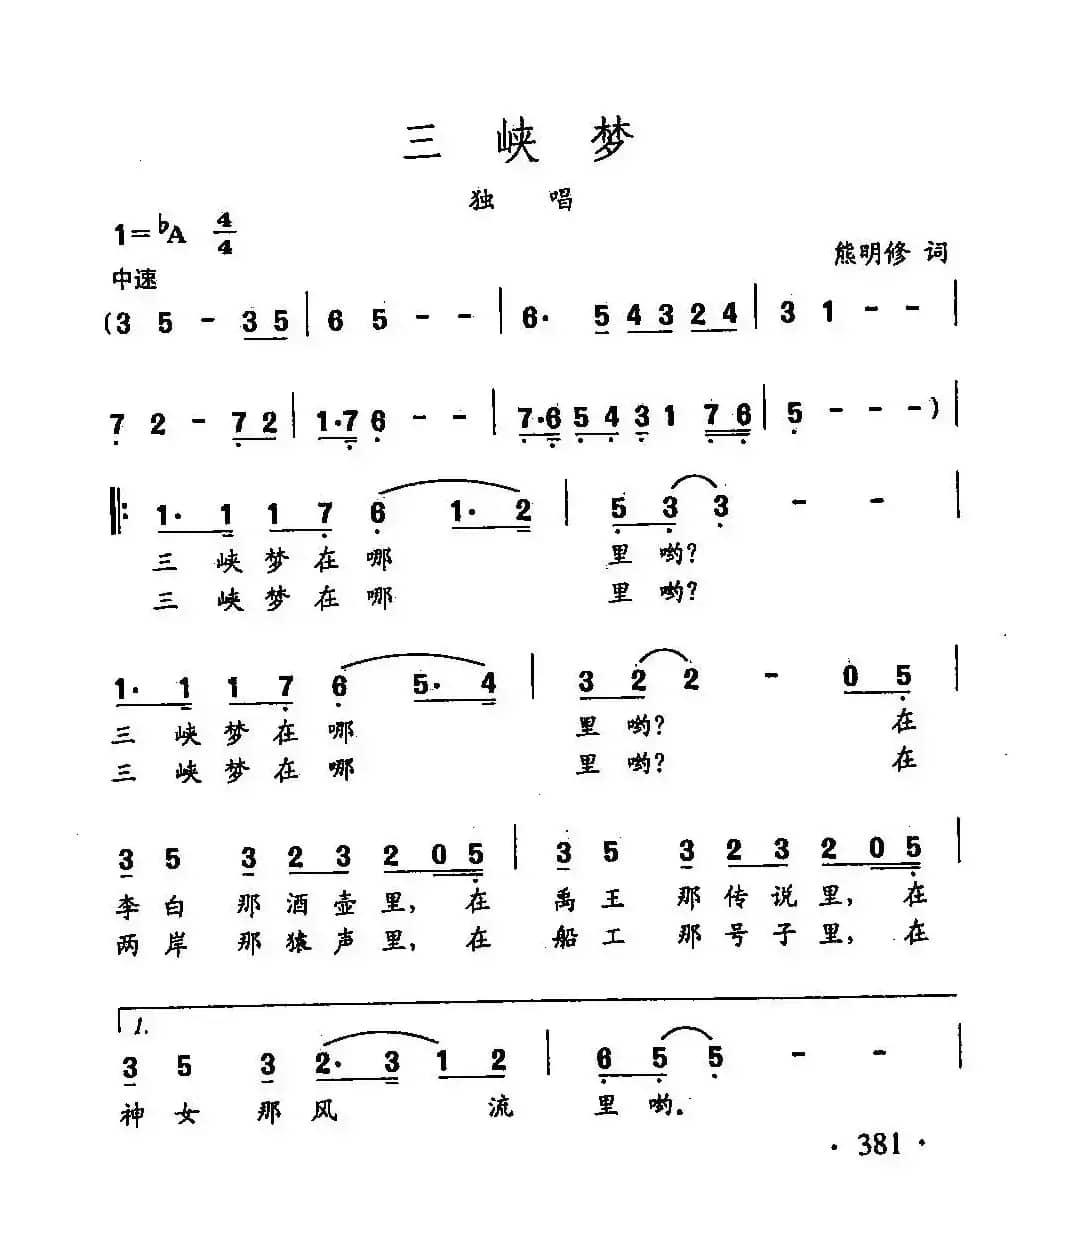 三 峡 梦
独 唱
1=♭A 4/4
熊明修 词
中速
(3 5 - 3 5 | 6 5 - - | 6· 5 4 3 2 4 | 3 1 - - |
7 2 - 7 2 | 1·7 6 - - | 7·6 5 4 3 1 7 6 | 5 - - -) |
‖: 1· 1 1 7 6 1· 2 | 5 3 3 - - |
三 峡 梦 在 哪 里 哟?
三 峡 梦 在 哪 里 哟?
1· 1 1 7 6 5· 4 | 3 2 2 - 0 5 |
三 峡 梦 在 哪 里 哟? 在
三 峡 梦 在 哪 里 哟? 在
3 5 3 2 3 2 0 5 | 3 5 3 2 3 2 0 5 |
李 白 那 酒 壶 里, 在 禹 王 那 传 说 里, 在
两 岸 那 猿 声 里, 在 船 工 那 号 子 里, 在
1.
3 5 3 2· 3 1 2 | 6 5 5 - - |
神 女 那 风 流 里 哟。
· 381 ·